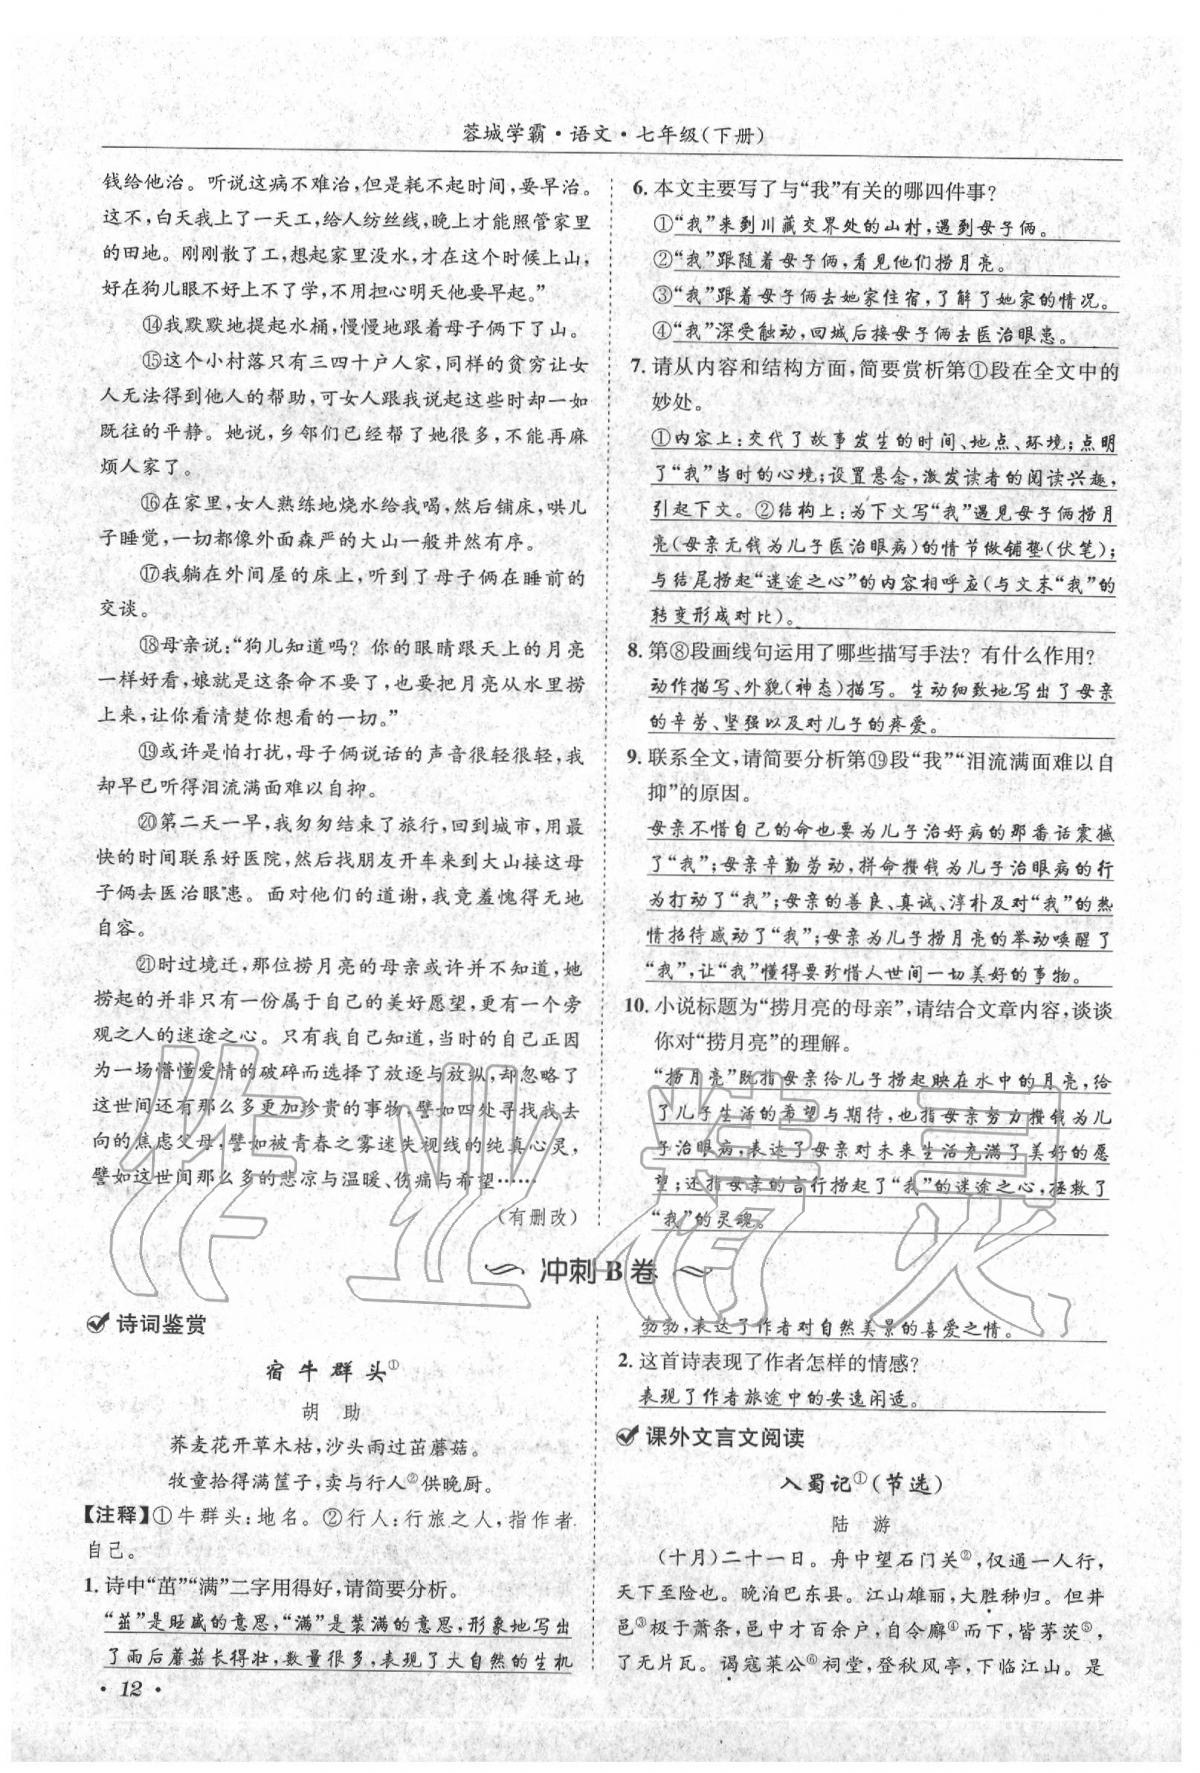 蓉城学霸·语文·七年级(下册)
钱给他治。听说这病不难治,但是耗不起时间,要早治。
这不,白天我上了一天工,给人纺丝线,晚上才能照管家里
的田地。刚刚散了工,想起家里没水,才在这个时候上山,
好在狗儿眼不好上不了学,不用担心明天他要早起。”
⑭我默默地提起水桶,慢慢地跟着母子俩下了山。
⑮这个小村落只有三四十户人家,同样的贫穷让女
人无法得到他人的帮助,可女人跟我说起这些时却一如
既往的平静。她说,乡邻们已经帮了她很多,不能再麻
烦人家了。
⑯在家里,女人熟练地烧水给我喝,然后铺床,哄儿
子睡觉,一切都像外面森严的大山一般井然有序。
⑰我躺在外间屋的床上,听到了母子俩在睡前的
交谈。
⑱母亲说:“狗儿知道吗?你的眼睛跟天上的月亮
一样好看,娘就是这条命不要了,也要把月亮从水里捞
上来,让你看清楚你想看的一切。”
⑲或许是怕打扰,母子俩说话的声音很轻很轻,我
却早已听得泪流满面难以自抑。
⑳第二天一早,我匆匆结束了旅行,回到城市,用最
快的时间联系好医院,然后找朋友开车来到大山接这母
子俩去医治眼患。面对他们的道谢,我竟羞愧得无地
自容。
㉑时过境迁,那位捞月亮的母亲或许并不知道,她
捞起的并非只有一份属于自己的美好愿望,更有一个旁
观之人的迷途之心。只有我自己知道,当时的自己正因
为一场懵懂爱情的破碎而选择了放逐与放纵,却忽略了
这世间还有那么多更加珍贵的事物,譬如四处寻找我去
向的焦虑父母,譬如被青春之雾迷失视线的纯真心灵,
譬如这世间那么多的悲凉与温暖、伤痛与希望……
(有删改)
6. 本文主要写了与“我”有关的哪四件事?
①“我”来到川藏交界处的山村,遇到母子俩。
②“我”跟随着母子俩,看见他们捞月亮。
③“我”跟着母子俩去她家住宿,了解了她家的情况。
④“我”深受触动,回城后接母子俩去医治眼患。
7. 请从内容和结构方面,简要赏析第①段在全文中的
妙处。
①内容上:交代了故事发生的时间、地点、环境;点明
了“我”当时的心境;设置悬念,激发读者的阅读兴趣,
引起下文。②结构上:为下文写“我”遇见母子俩捞月
亮(母亲无钱为儿子医治眼病)的情节做铺垫(伏笔);
与结尾捞起“迷途之心”的内容相呼应(与文末“我”的
转变形成对比)。
8. 第⑧段画线句运用了哪些描写手法?有什么作用?
动作描写、外貌(神态)描写。生动细致地写出了母亲
的辛劳、坚强以及对儿子的疼爱。
9. 联系全文,请简要分析第⑲段“我”“泪流满面难以自
抑”的原因。
母亲不惜自己的命也要为儿子治好病的那番话震撼
了“我”;母亲辛勤劳动,拼命攒钱为儿子治眼病的行
为打动了“我”;母亲的善良、真诚、淳朴及对“我”的热
情招待感动了“我”;母亲为儿子捞月亮的举动唤醒了
“我”,让“我”懂得要珍惜人世间一切美好的事物。
10. 小说标题为“捞月亮的母亲”,请结合文章内容,谈谈
你对“捞月亮”的理解。
“捞月亮”既指母亲给儿子捞起映在水中的月亮,给
了儿子生活的希望与期待,也指母亲努力攒钱为儿
子治眼病,表达了母亲对未来生活充满了美好的愿
望;还指母亲的言行捞起了“我”的迷途之心,拯救了
“我”的灵魂。
冲刺 B 卷
诗词鉴赏
宿牛群头①
胡 助
荞麦花开草木枯,沙头雨过茁蘑菇。
牧童拾得满筐子,卖与行人②供晚厨。
【注释】①牛群头:地名。②行人:行旅之人,指作者
自己。
1. 诗中“茁”“满”二字用得好,请简要分析。
“茁”是旺盛的意思,“满”是装满的意思,形象地写出
了雨后蘑菇长得壮,数量很多,表现了大自然的生机
勃勃,表达了作者对自然美景的喜爱之情。
2. 这首诗表现了作者怎样的情感?
表现了作者旅途中的安逸闲适。
课外文言文阅读
入蜀记①(节选)
陆 游
(十月)二十一日。舟中望石门关②,仅通一人行,
天下至险也。晚泊巴东县。江山雄丽,大胜秭归。但井
邑③极于萧条,邑中才百余户,自令廨④而下,皆茅茨⑤,
了无片瓦。谒寇莱公⑥祠堂,登秋风亭,下临江山。是
·12·
作业精灵